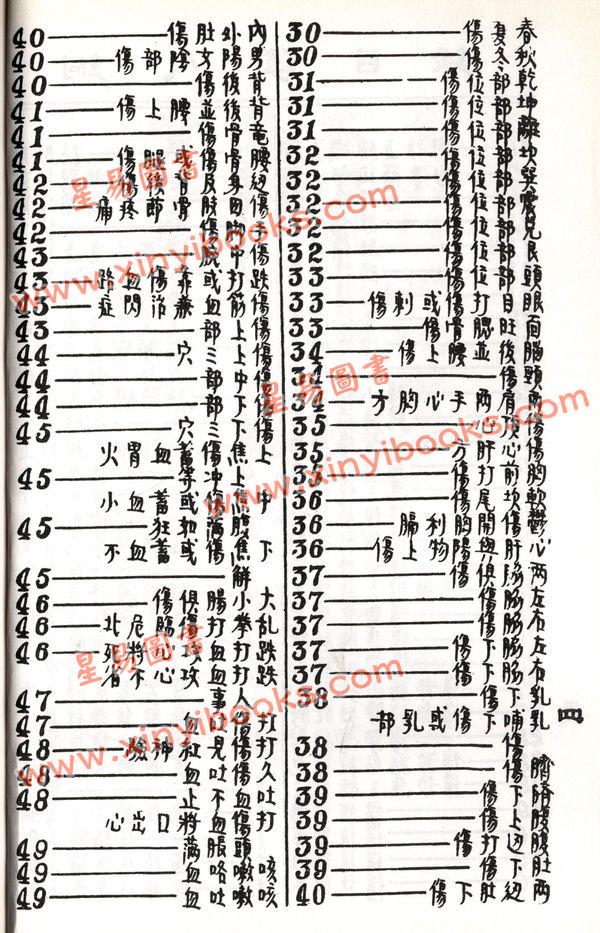 四
春夏傷 30
秋冬傷 30
乾部位傷 31
坤部位傷 31
離部位傷 31
坎部位傷 32
巽部位傷 32
震部位傷 32
兌部位傷 32
艮部位傷 32
頭部位傷 33
眼目打傷或刺傷 33
面旺腮骨傷 33
腦後並腰上傷 34
頭傷 34
兩肩兩手心胸方 34
傷頂心 35
傷心肝方 35
胸前打傷 35
軟坎尾傷 36
鬱傷開胸利膈 36
心肝陽物上傷 36
兩脇俱傷 37
左脇傷 37
右脇傷 37
左脇下傷 37
右脇下傷 37
乳下傷 38
乳哺下傷或乳部
傷 38
臍傷 38
腰下傷 39
腹上傷 39
腹边打傷 39
肚下傷 39
兩边肚下傷 40
內外肚傷 40
男陽女陰部傷 40
背後傷 40
背後並腰上傷 41
竜骨傷 41
腰骨傷或腿傷 41
边身及背後傷 42
傷四肢骨節疼痛 42
手中脚傷 42
傷腕 43
跌打或靠傷血路 43
傷筋血兼治閃症 43
傷上部血 43
傷上三穴 44
傷中部 44
傷下部 44
傷下三穴 45
上焦傷等蓄血胃火 45
中焦傷或蓄血小 45
下焦傷或蓄血不
解 45
大小腸俱傷 46
乱拳打傷肋危北 46
跌打血攻心將死 46
跌打血攻心不省
人事 47
打傷口血 47
打傷見紅神驗 48
久傷吐血 48
吐血不止 48
打傷血將出口心
滿 49
咳嗽咯血 49
咳嗽吐血 49
星易圖書
www.xinyibooks.com
星易圖書
www.xinyibooks.com
星易圖書
www.xinyibooks.com